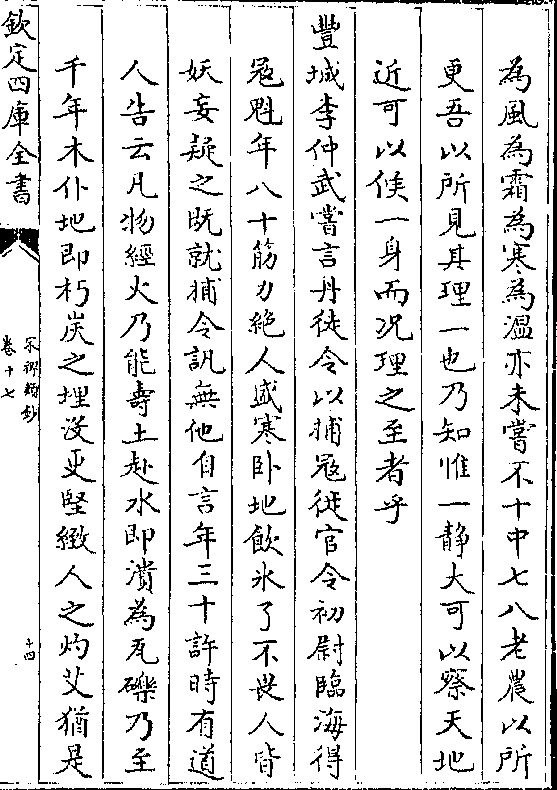 為風為霜為寒為溫亦未嘗不十中七八老農以所
更吾以所見其理一也乃知惟一靜大可以察天地
近可以候一身而况理之至者乎
豐城李仲武嘗言丹徒令以捕冦徙官令初尉臨海得
冦魁年八十筋力絶人盛寒卧地飲氷了不畏人皆
妖妄疑之既就捕令訊無他自言年三十許時有道
人告云凡物經火乃能壽土赴水即潰為瓦礫乃至
千年木仆地即朽炭之埋没更堅緻人之灼艾猶是
欽定四庫全書
宋稗類鈔
卷十七
十四